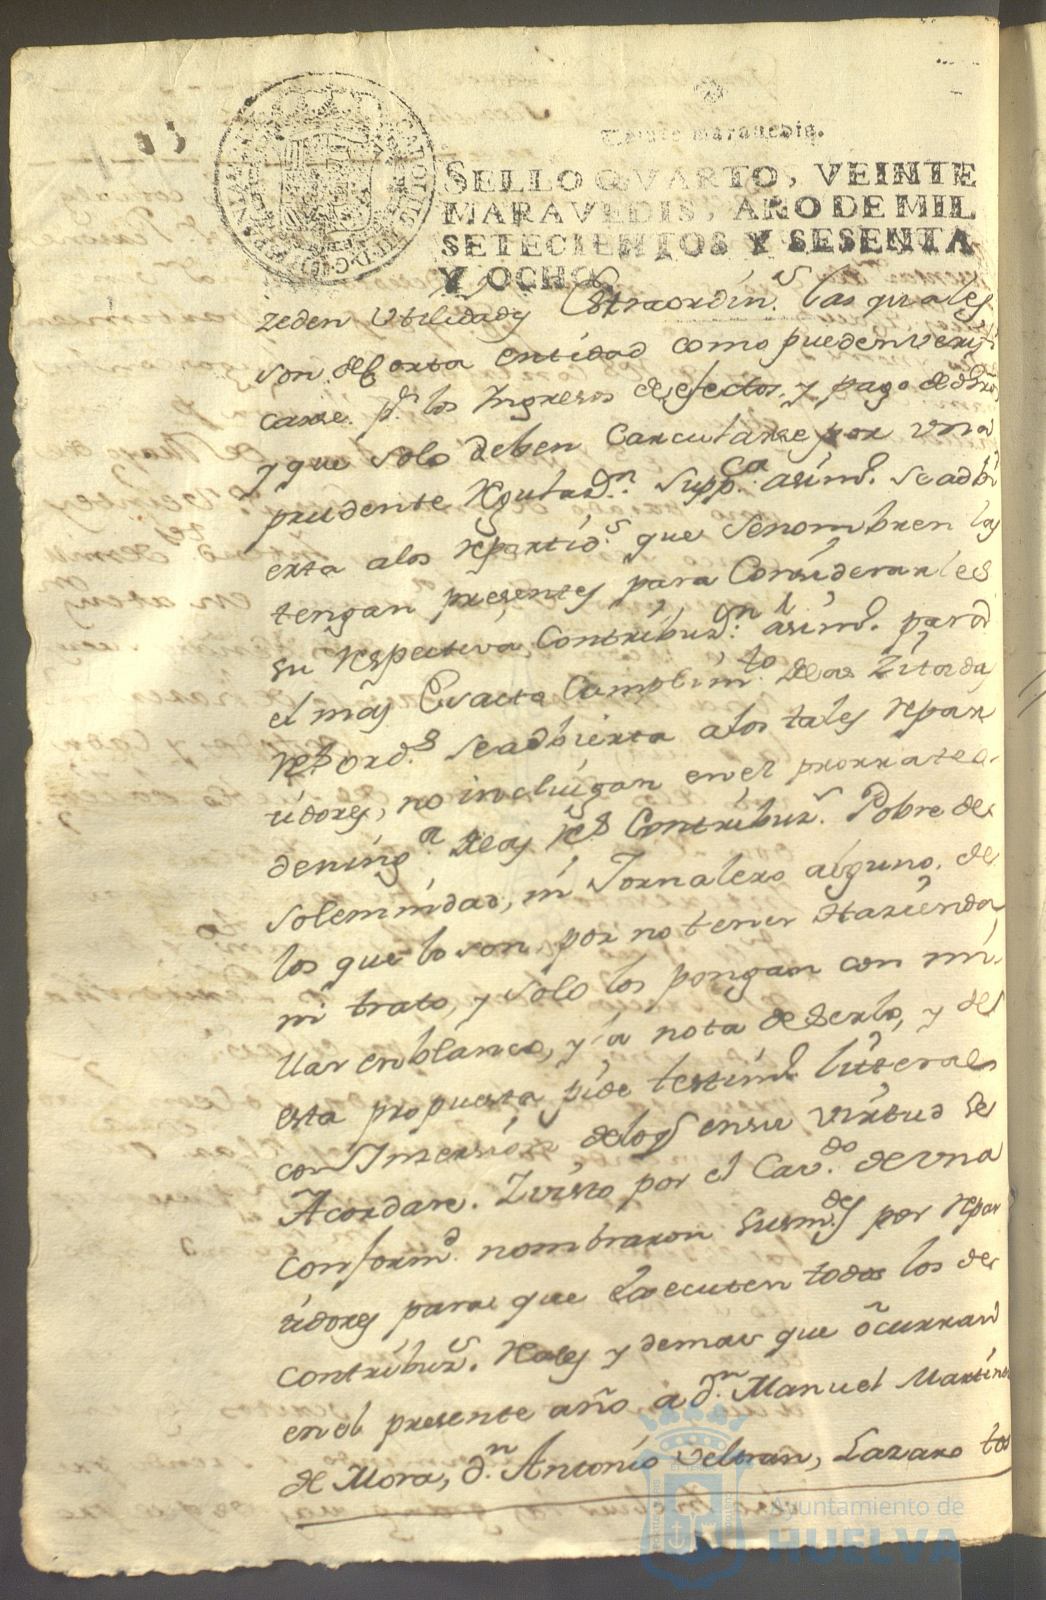 Veinte maravedis.
SELLO QVARTO, VEINTE
MARAVEDIS, AÑO DE MIL
SETECIENTOS Y SESENTA
Y OCHO.
zeden Utilidades Extraordin.s las quales
son de corta entidad como pueden verifi
carse p.r los Ingresos de efectos, y pago de dros
y que solo deben Carcularse por una
prudente Regulaz.n Supp.ca asim.o se adbi
erta a los repartid.s que se nombren las
tengan presentes para Considerarles
su respectiva Contribuz.on asim.o para
el mas Exacto Cumplim.to de las Zitadas
R.s ord.s se adbierta a los tales repar
tidores, no incluigan en el prorrateo
de ning.a de las R.s Contribuz.s Pobre de
solemnidad, ni Jornalero alguno, de
los que lo son, por no tener Hazienda
ni trato, y solo los pongan con mi
llar en blanco, y la nota de serlo, y de
esta propuesta pide testim.o literal
con Inzersion de lo q.e en su virtud se
Acordare. Y visto por el Cav.do de una
conform.d nombraron sus m.des por repar
tidores para que Executen todos los de
contribuz.s Reales y demas que ocurran
en el presente año a d.n Manuel Martin
de Mora, d.n Antonio Veltran, Lazaro
Ayuntamiento de
HUELVA